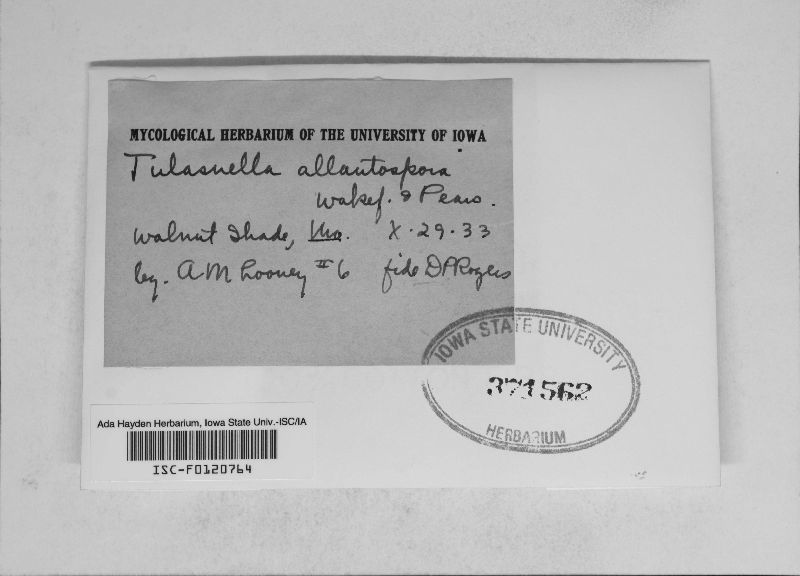 MYCOLOGICAL HERBARIUM OF THE UNIVERSITY OF IOWA
Tulasnella allantospora
Wakef. & Pears.
Walnut Shade, Mo. X.29.33
leg. A M Looney #6 fide D P Rogers
IOWA STATE UNIVERSITY
371562
HERBARIUM
Ada Hayden Herbarium, Iowa State Univ.-ISC/IA
ISC-F0120764